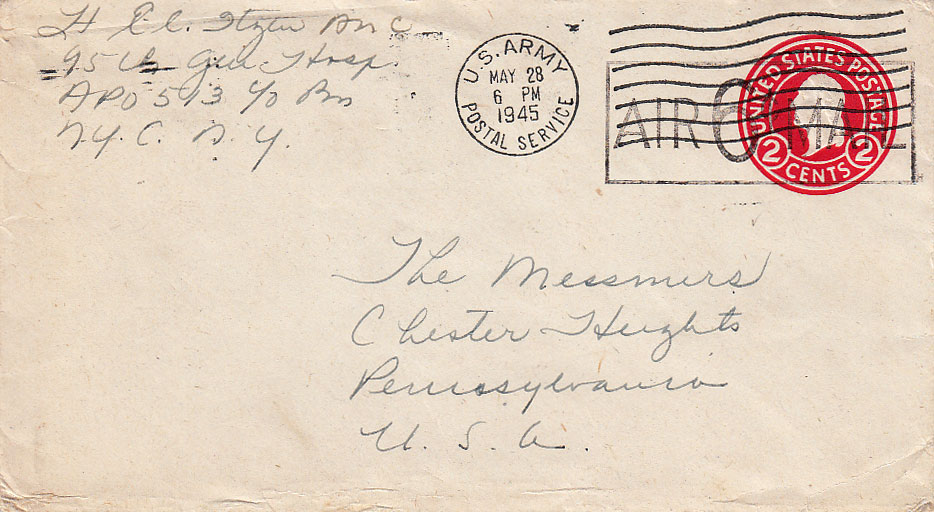 95th Gen Hosp.
APO 513 c/o Pm
N.Y.C. N.Y.
U.S. ARMY
MAY 28
6 PM
1945
POSTAL SERVICE
AIR 6¢ MAIL
UNITED STATES POSTAGE
2 CENTS 2
The Messmers
Chester Heights
Pennsylvania
U. S. A.